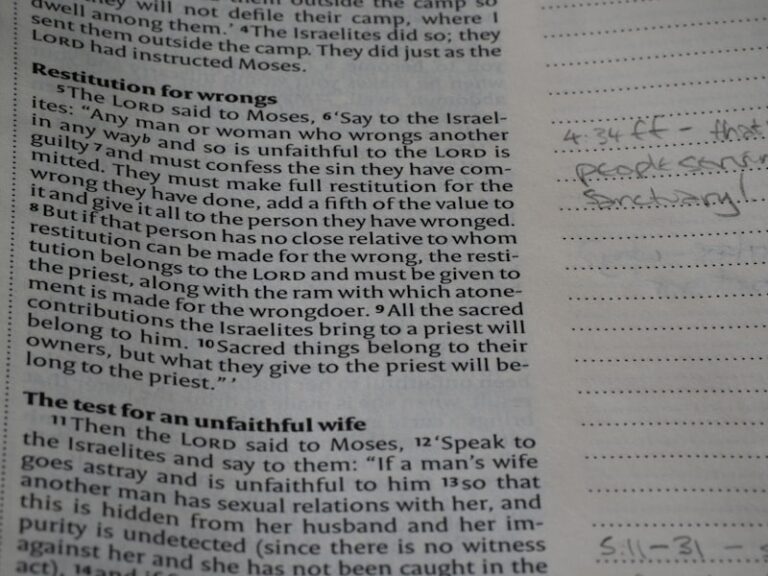 they will not defile their camp, where I
dwell among them.' 4The Israelites did so; they
sent them outside the camp. They did just as the
LORD had instructed Moses.
Restitution for wrongs
5The LORD said to Moses, 6'Say to the Israel-
ites: "Any man or woman who wrongs another
in any wayb and so is unfaithful to the LORD is
guilty 7and must confess the sin they have com-
mitted. They must make full restitution for the
wrong they have done, add a fifth of the value to
it and give it all to the person they have wronged.
8But if that person has no close relative to whom
restitution can be made for the wrong, the resti-
tution belongs to the LORD and must be given to
the priest, along with the ram with which atone-
ment is made for the wrongdoer. 9All the sacred
contributions the Israelites bring to a priest will
belong to him. 10Sacred things belong to their
owners, but what they give to the priest will be-
long to the priest."'
The test for an unfaithful wife
11Then the LORD said to Moses, 12'Speak to
the Israelites and say to them: "If a man's wife
goes astray and is unfaithful to him 13so that
another man has sexual relations with her, and
this is hidden from her husband and her im-
purity is undetected (since there is no witness
against her and she has not been caught in the
act), 14and if
4:34 ff - that
people
sanctuary!
5:11-31 -